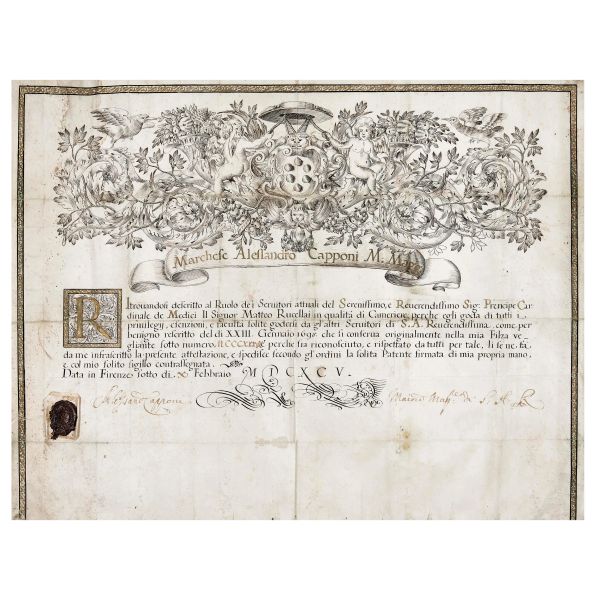 Marchese Alessandro Capponi M. M.
Ritrovandosi descritto al Ruolo dei Servitori attuali del Serenissimo, e Reverendissimo Sig. Prencipe Car-
dinale de Medici Il Signor Matteo Rucellai in qualità di Cameriere, perche egli goda di tutti i
privilegij, esenzioni, e facultà solite godersi da gl'altri Servitori di S. A. Reverendissima, come per
benigno rescritto del dì XXIII. Gennaio che si conserva originalmente nella mia Filza ve-
gliante sotto numero, perche sia riconosciuto, e rispettato da tutti per tale, li se ne fà
da me infrascritto la presente attestazione, e spedisce secondo gl'ordini la solita Patente firmata di mia propria mano,
e col mio solito sigillo contrassegnata.
Data in Firenze sotto dì X Febbraio MDCXCV.
Alessandro Capponi Maestro